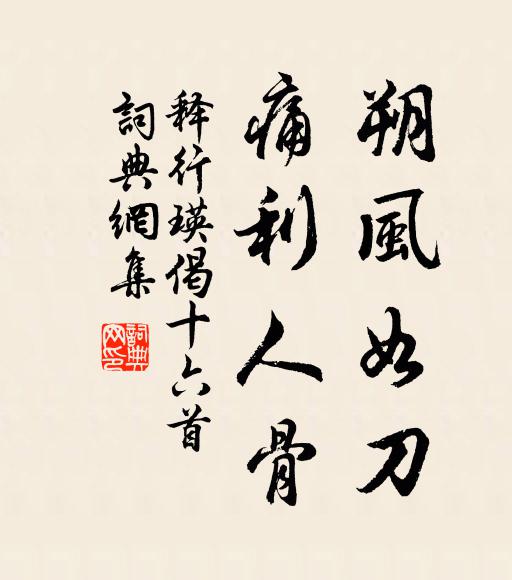 朔風如刀
痛利人骨
释行瑛偈十六首
詞典網集
詞典網印